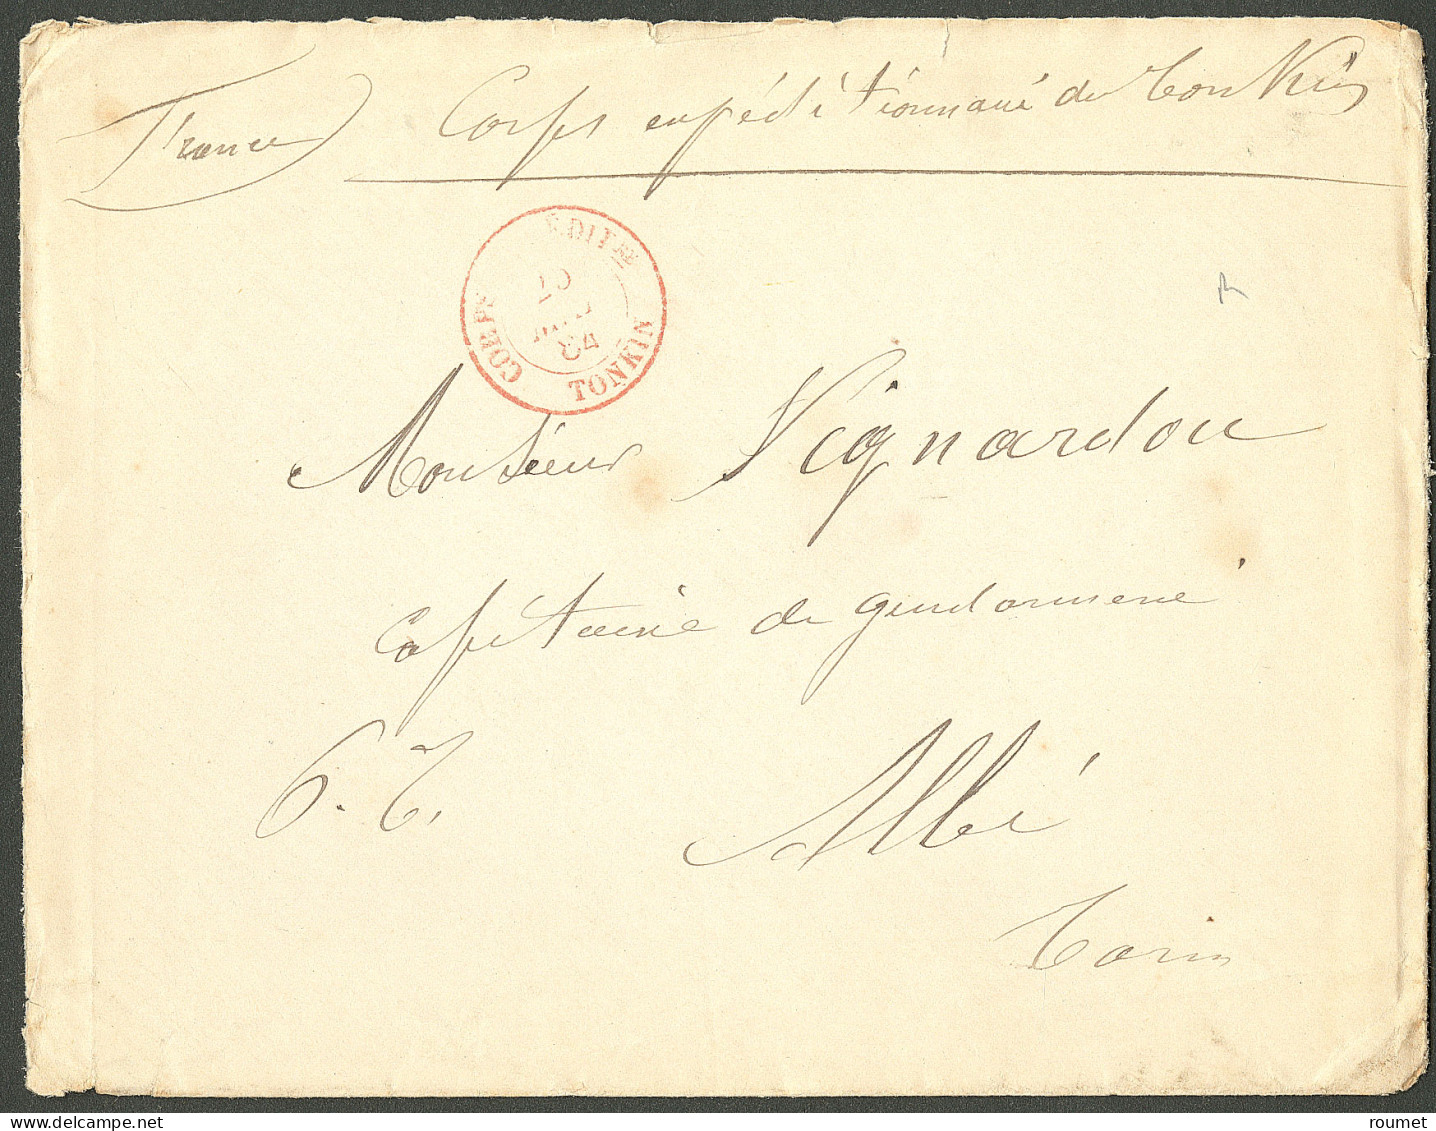 France
Corps expéditionnaire du Tonkin
CORPS EXPÉDITRE
TONKIN
84
Monsieur Vignardou
Capitaine de gendarmerie
Albi
Tarn
roumet | delcampe.net